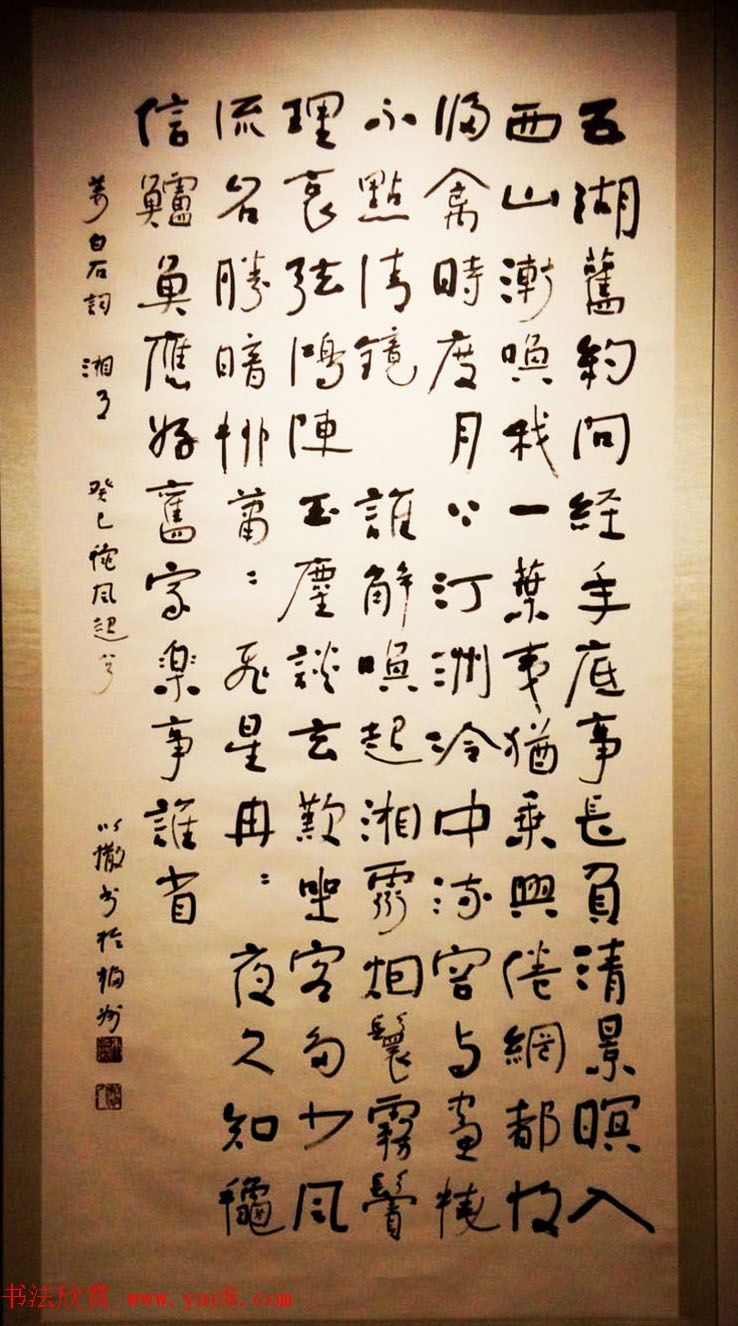 五湖舊約問経年底事長負清景暝入
西山漸喚我一葉夷猶乗興倦網都收
歸禽時度月上汀洲冷中流容与畫橈
不點清鏡 誰解喚起湘靈烟鬟霧鬢
理哀弦鴻陣玉麈談玄歎坐客多少風
流名勝暗柳蕭〻飛星冉〻夜久知龝
信鱸魚應好舊家楽事誰省
姜白石詞 湘月 癸巳龝風起兮 以撒书於福州
书法欣赏 www.yac8.com